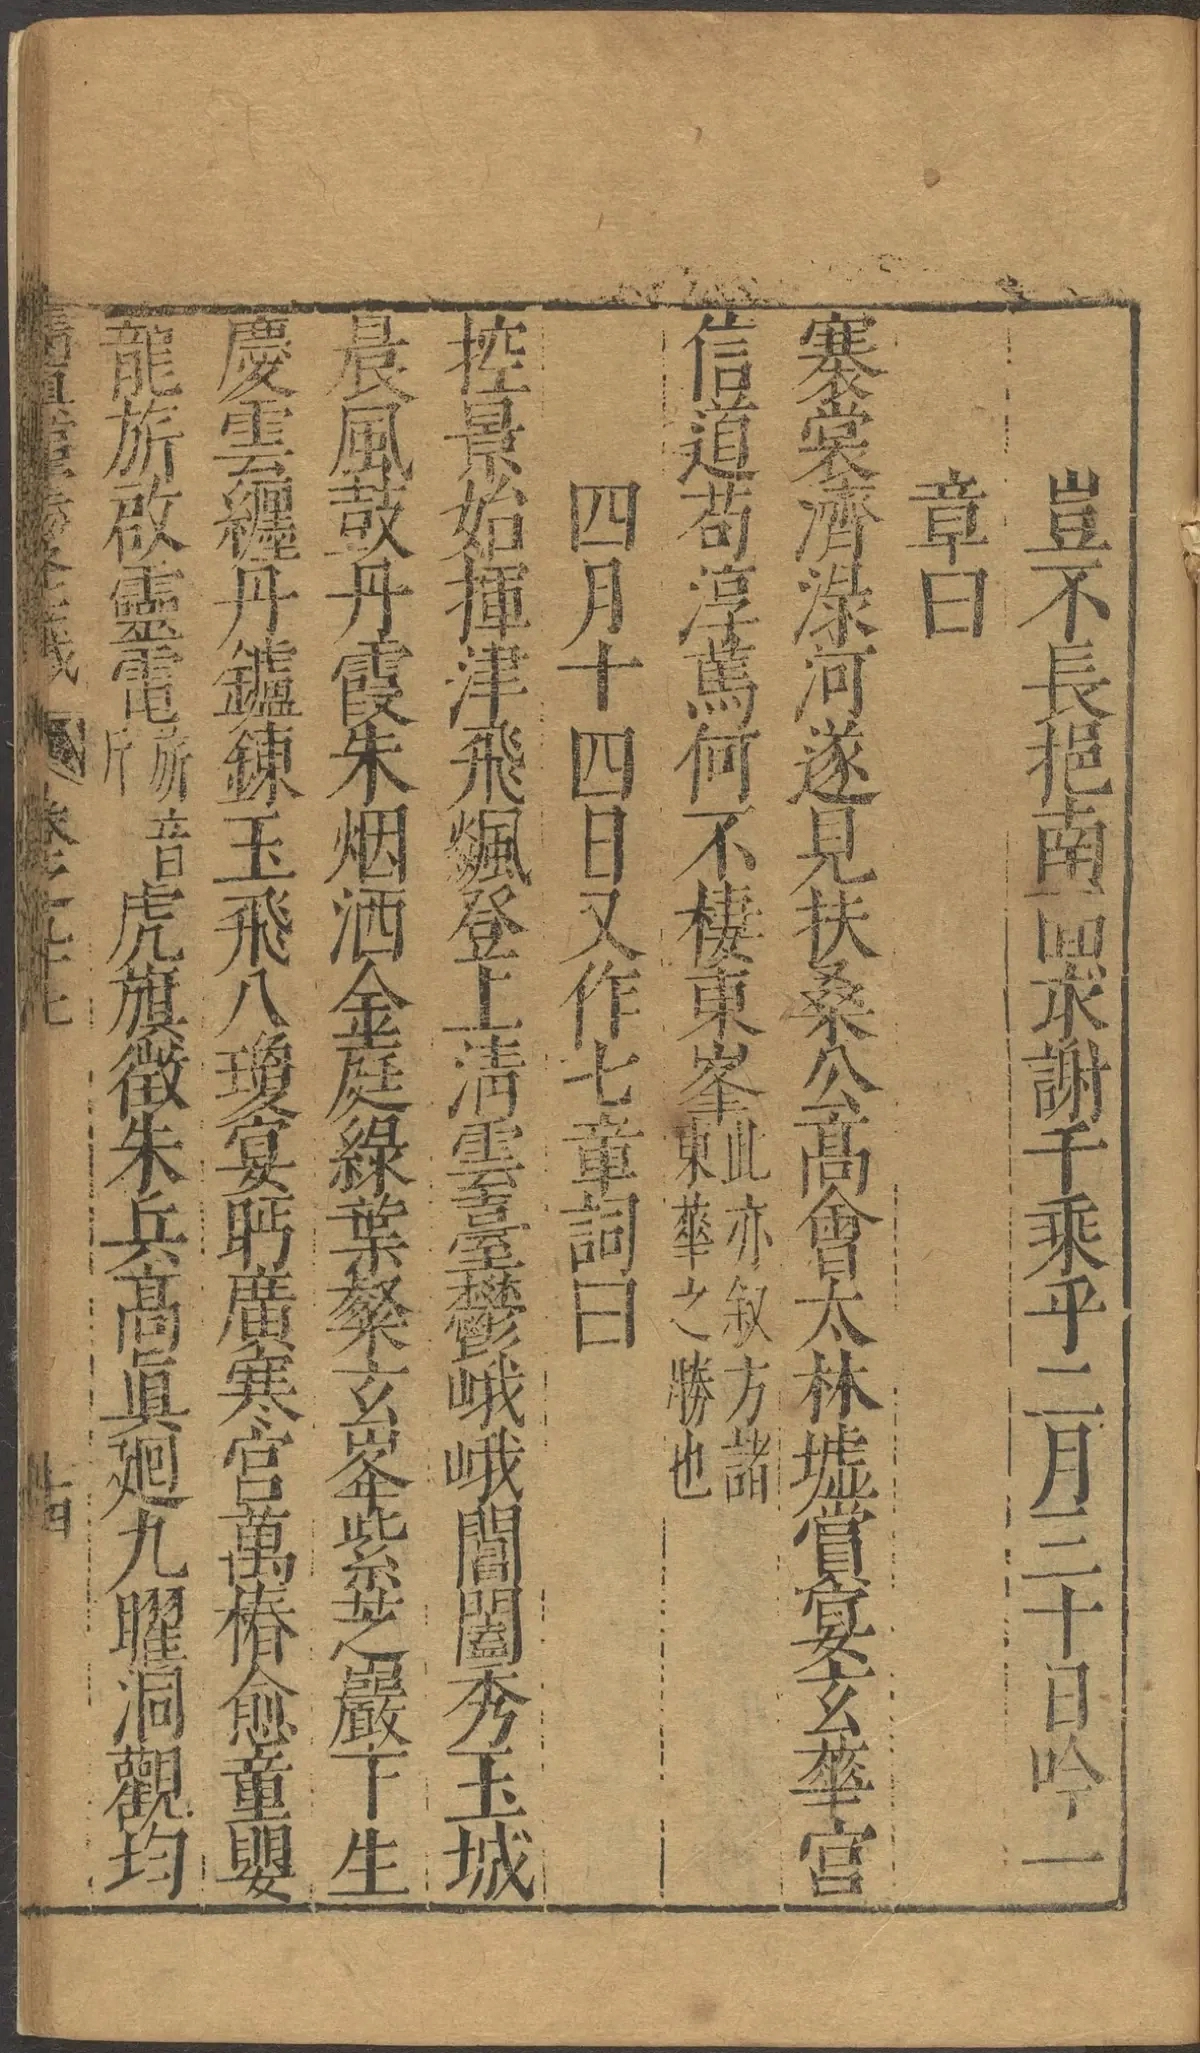 豈不長挹南面永謝千乘乎二月三十日吟一
章曰
褰裳濟淥河遂見扶桑公髙會太林墟賞宴玄華宮
信道苟淳篤何不棲東峯此亦叙方諸東華之勝也
四月十四日又作七章詞曰
控景始揮津飛飈登上清雲臺鬱峨峨閶闔秀玉城
晨風鼓丹霞朱烟洒金庭綠葉粲玄峯紫芝巖下生
慶雲纏丹鑪錬玉飛八瓊宴眄廣寒宮萬椿愈童嬰
龍旂啟靈電旂音虎旗徵朱兵髙眞廻九曜洞觀均
十四